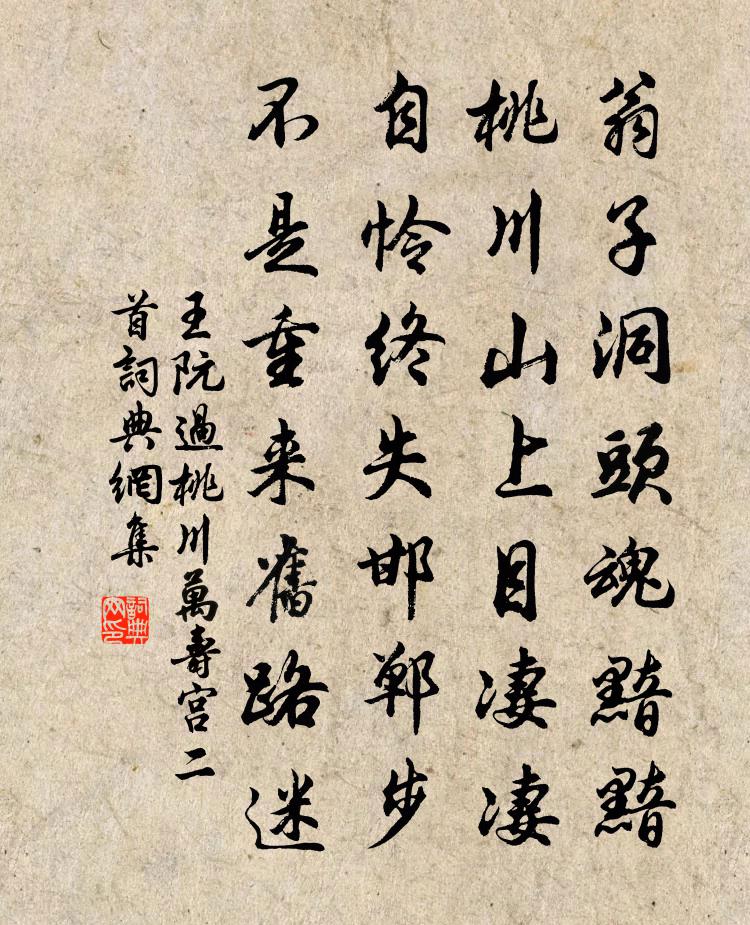 翁子洞頭魂黯黯
桃川山上目凄凄
自怜終失邯鄲步
不是重来舊路迷
王阮過桃川萬壽宮二
首詞典網集
詞典网印